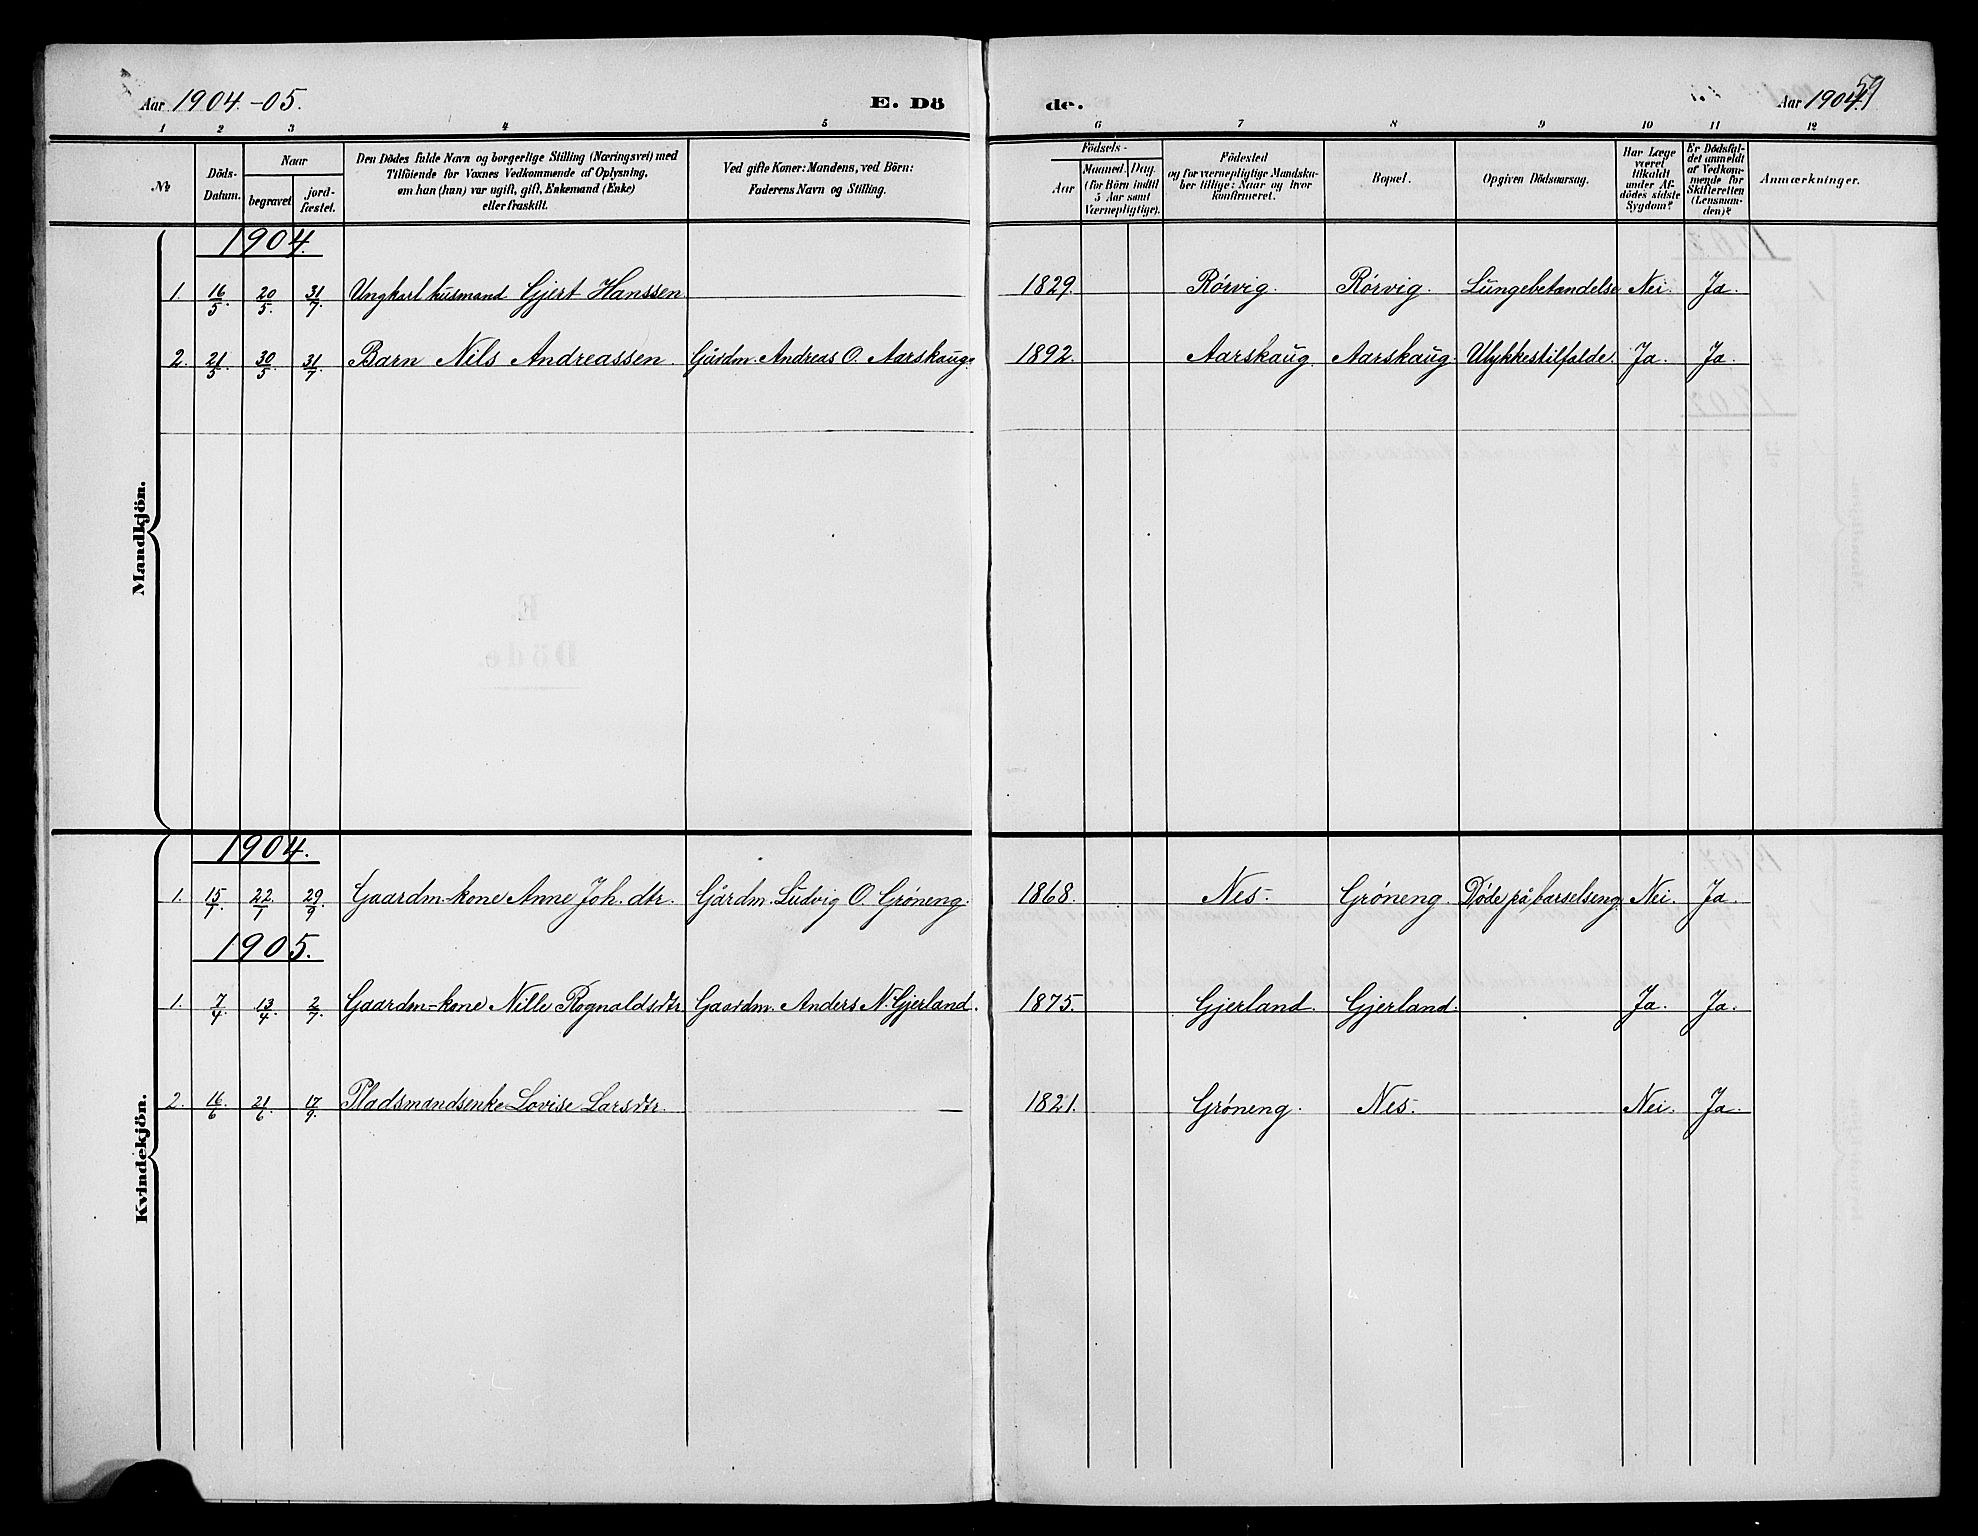 Aar 1904.-05. E. Dö de. Aar 1904. 59
1 2 3 4 5 6 7 8 9 10 11 12
№ Döds-Datum. Naar begravet jord-fæstet. Den Dödes fulde Navn og borgerlige Stilling (Næringsvei) med Tilföiende for Voxnes Vedkommende af Oplysning, om han (hun) var ugift, gift, Enkemand (Enke) eller fraskilt. Ved gifte Koner: Mandens, ved Börn: Faderens Navn og Stilling. Födsels- Aar Maaned. Dag. (for Börn indtil 5 Aar samt Værnepligtige). Födested og for værnepligtige Mandskaber tillige: Naar og hvor konfirmeret. Bopæl. Opgiven Dödsaarsag. Har Læge været tilkaldt under Afdödes sidste Sygdom? Er Dödsfaldet anmeldt af Vedkommende for Skifteretten (Lensmanden)? Anmærkninger.
Mandkjön.
1904.
1. 16/5 20/5. 31/7 Ungkarl husmand Gjert Hanssen. 1829. Rørvig. Rørvig. Lungebetændelse Nei. Ja.
2. 21/5 30/5 31/7 Barn Nils Andreassen. Gårdm. Andreas O. Aarskaug. 1892. Aarskaug. Aarskaug. Ulykkestilfælde. Ja. Ja.
Kvindekjön.
1904.
1. 15/7 22/7 29/9 Gaardm.-kone Anne Joh. dtr. Gårdm. Ludvig O. Grøneng. 1868. Nes. Grøneng. Døde på barselseng. Nei. Ja.
1905.
1. 7/4 13/4 2/7 Gaardm.-kone Nille Rognaldsdtr. Gaardm. Anders N. Gjerland. 1875. Gjerland. Gjerland. Ja. Ja.
2. 16/6 21/6 17/9. Pladsmandsenke Lovise Larsdtr. — 1821. Grøneng. Nes. Nei. Ja.